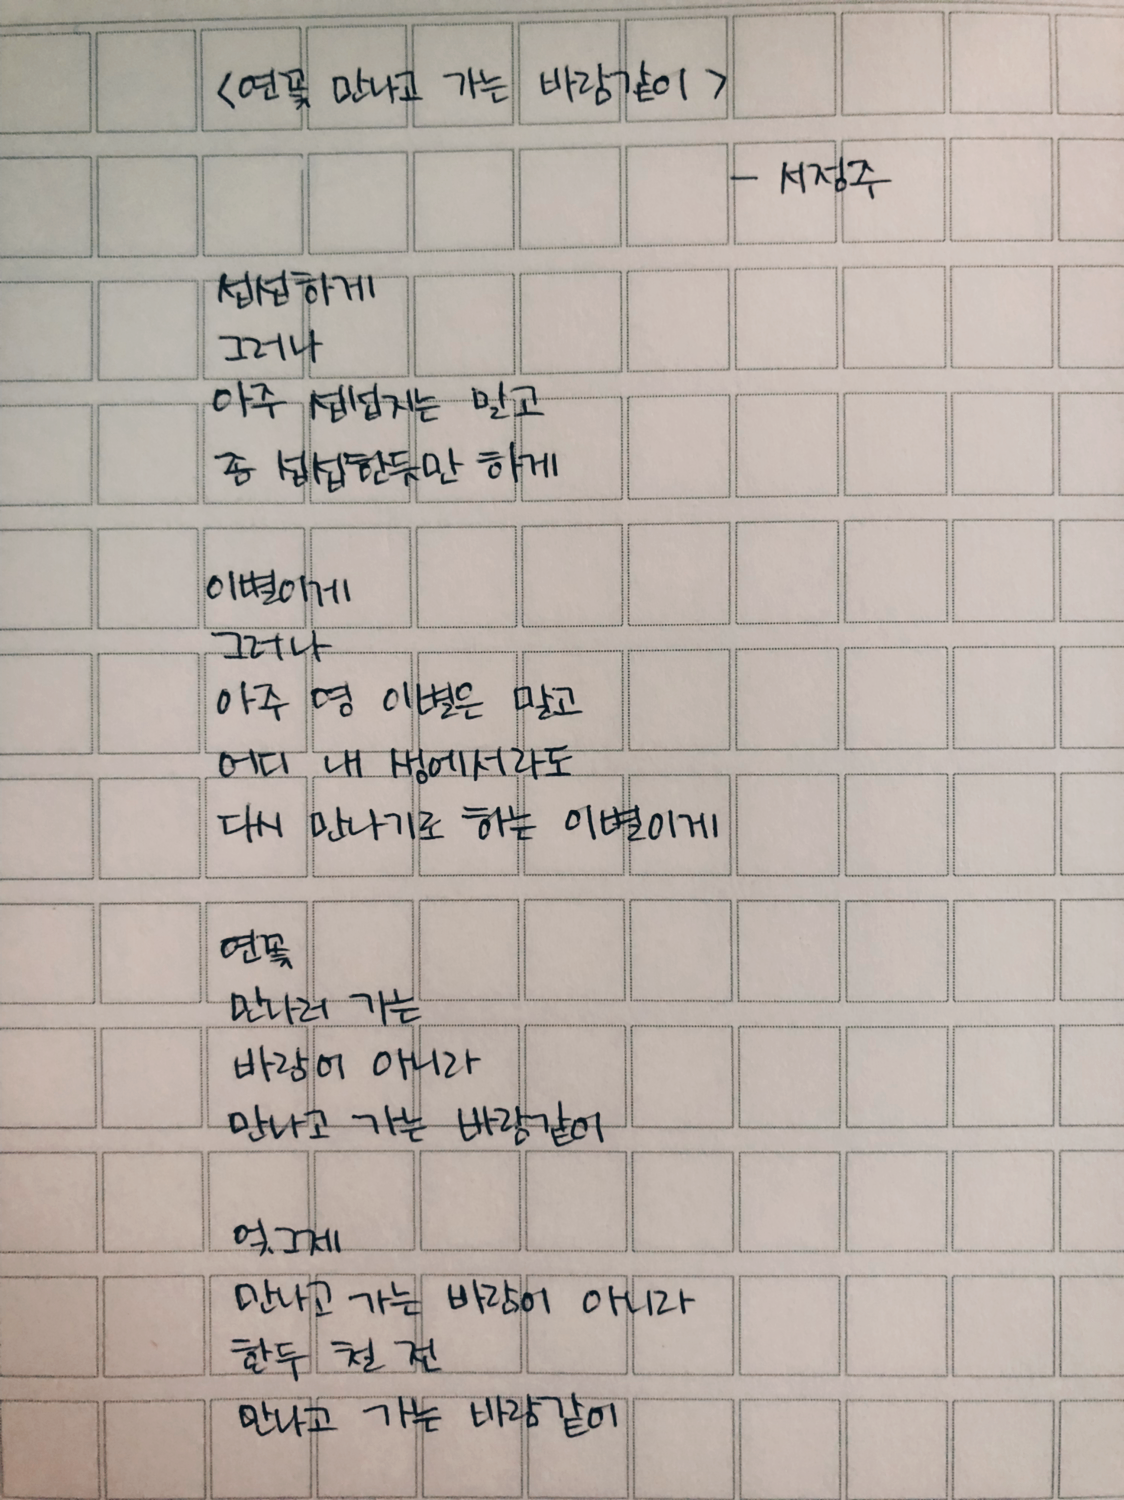 <연꽃 만나고 가는 바람같이>
- 서정주
섭섭하게
그러나
아주 섭섭지는 말고
좀 섭섭한듯만 하게
이별이게
그러나
아주 영 이별은 말고
어디 내 생에서라도
다시 만나기로 하는 이별이게
연꽃
만나러 가는
바람이 아니라
만나고 가는 바람같이
엊그제
만나고 가는 바람이 아니라
한두 철 전
만나고 가는 바람같이